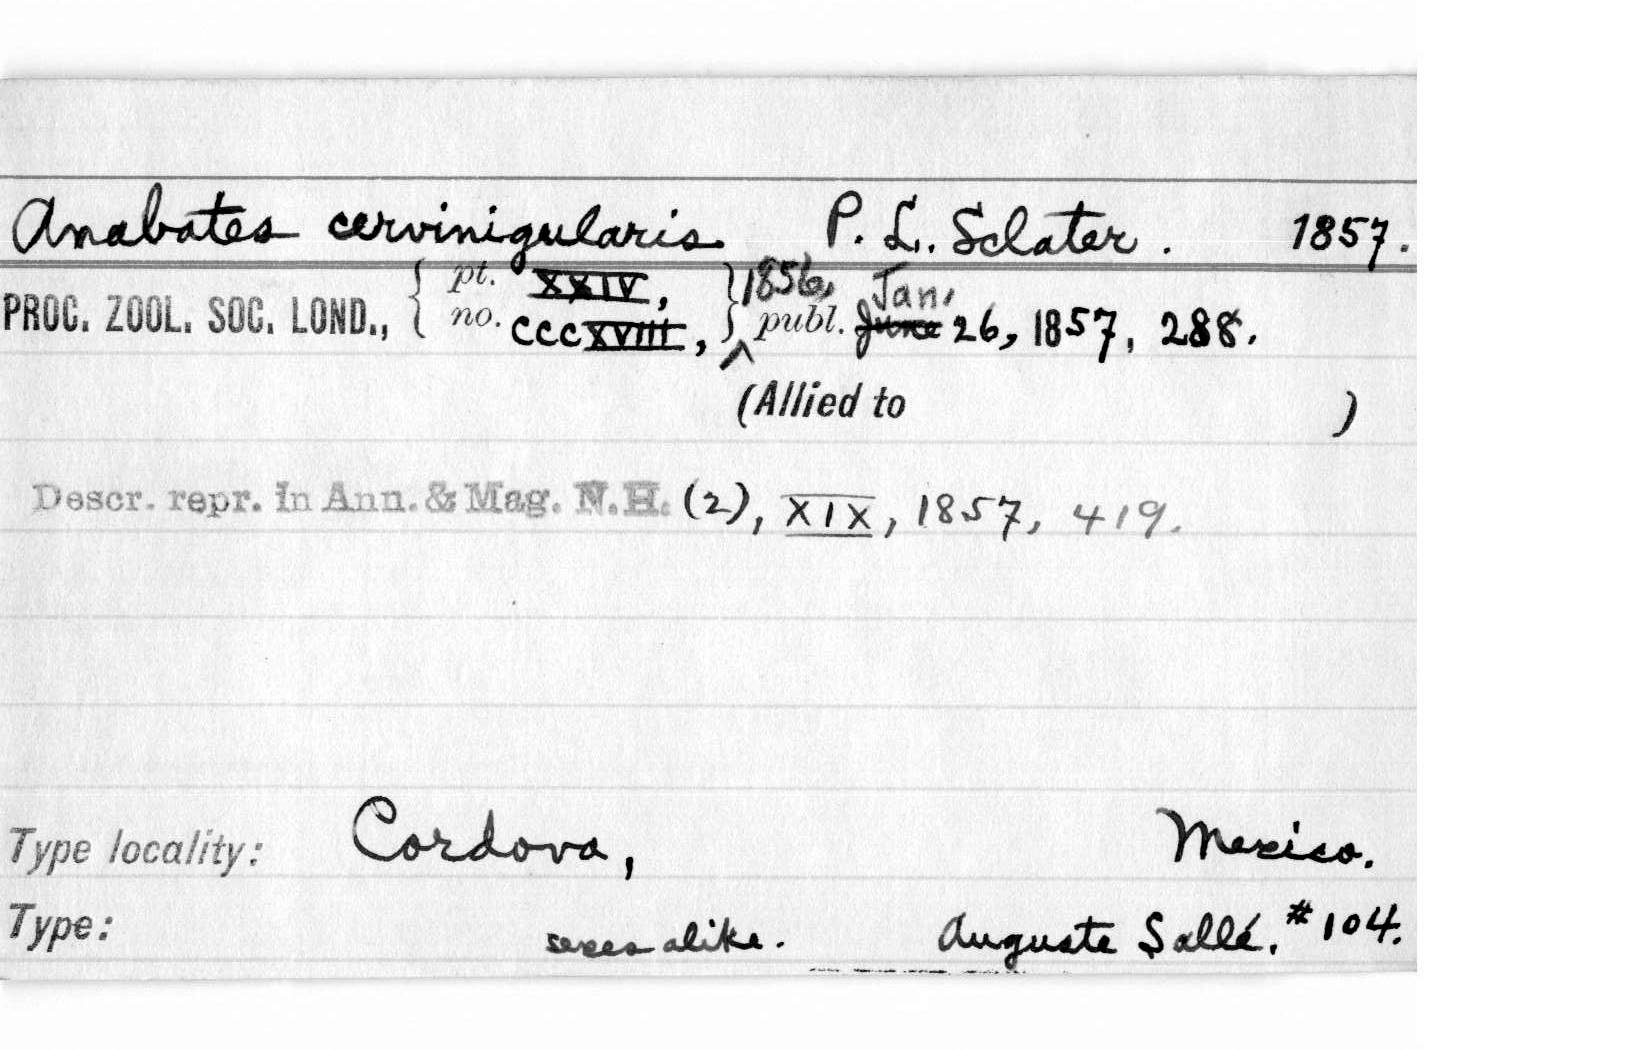 Anabates cervinigularis. P. L. Sclater. 1857.
PROC. ZOOL. SOC. LOND., { pt. XXIV, no. CCCXVIII, } 1856, publ. June Jan. 26, 1857, 288.
(Allied to )
Descr. repr. in Ann. & Mag. N.H. (2), XIX, 1857, 419.
Type locality: Cordova, Mexico.
Type: sexes alike. Auguste Sallé. #104.